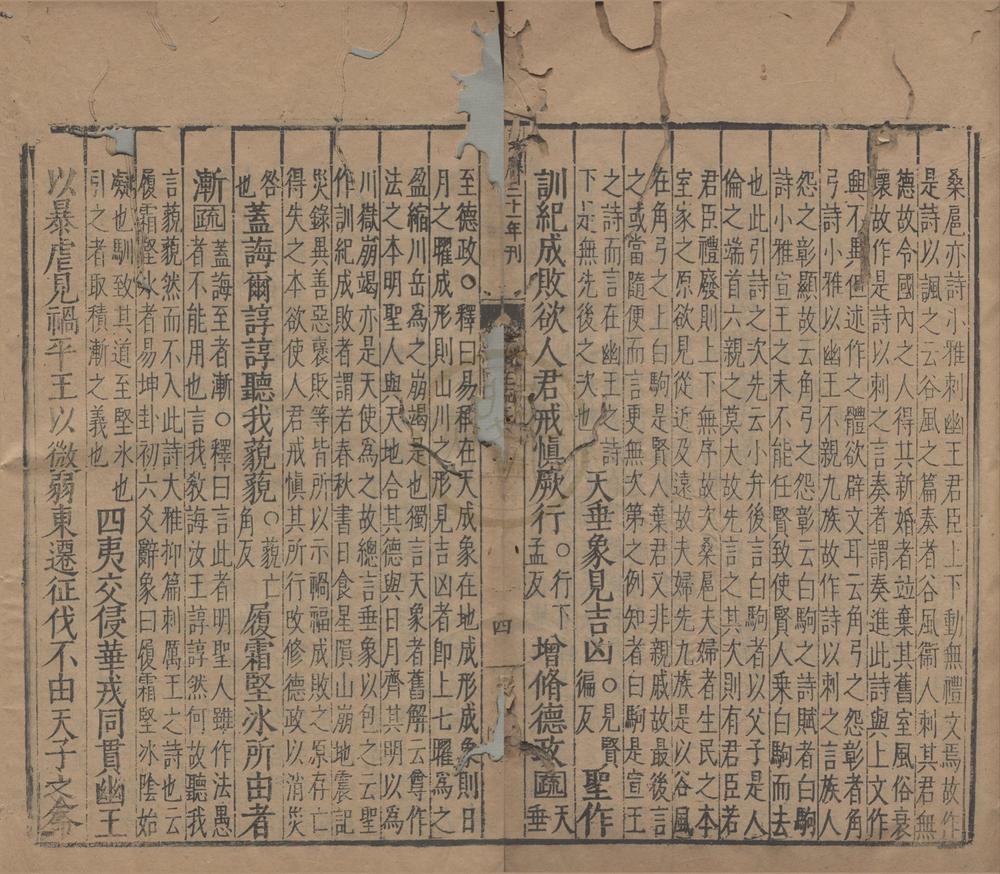 桑扈亦詩小雅刺幽王君臣上下動無禮文焉故作
是詩以諷之云谷風之篇奏者谷風衞人刺其君無
德故令國內之人得其新婚者竝棄其舊室風俗衰
壞故作是詩以刺之言奏者謂奏進此詩與上文作
與不異但述作之體欲辟文耳云角弓之怨彰者角
弓詩小雅以幽王不親九族故作詩以刺之言族人
怨之彰顯故云角弓之怨彰云白駒之詩賦者白駒
詩小雅宣王之末不能任賢致使賢人乘白駒而去
也此引詩之次先云小弁後言白駒者以父子是人
倫之端首六親之莫大故先言之其次則有君臣若
君臣禮廢則上下無序故次桑扈夫婦者生民之本
室家之原欲見從近及遠故夫婦先九族是以谷風
在角弓之上白駒是賢人棄君又非親戚故最後言
之或當隨便而言更無次第之例知者白駒是宣王
之詩而言在幽王之詩
下是無先後之次也
天垂象見吉凶
○見賢
徧反
聖作
訓紀成敗欲人君戒愼厥行
○行下
孟反
增脩德政
疏
天
垂
至德政○釋曰易稱在天成象在地成形成象則日
月之曜成形則山川之形見吉凶者卽上七曜爲之
盈縮川岳爲之崩竭是也獨言天象者舊解云尊作
法之本明聖人與天地合其德與日月齊其明以爲
川嶽崩竭亦是天使爲之故總言垂象以包之云聖
作訓紀成敗者謂若春秋書日食星隕山崩地震記
災錄異善惡襃貶等皆所以示禍福成敗之原存亡
得失之本欲使人君戒愼其所行改修德政以消災
咎
也
蓋誨爾諄諄聽我藐藐
○藐亡
角反
履霜堅冰所由者
漸
疏
蓋誨至者漸○釋曰言此者明聖人雖作法愚
者不能用也言我敎誨汝王諄諄然何故聽我
言藐藐然而不入此詩大雅抑篇刺厲王之詩也云
履霜堅冰者易坤卦初六爻辭象曰履霜堅冰陰始
凝也馴致其道至堅冰也
引之者取積漸之義也
四夷交侵華戎同貫幽王
以暴虐見禍平王以微弱東遷征伐不由天子之命
二十一年刊
四